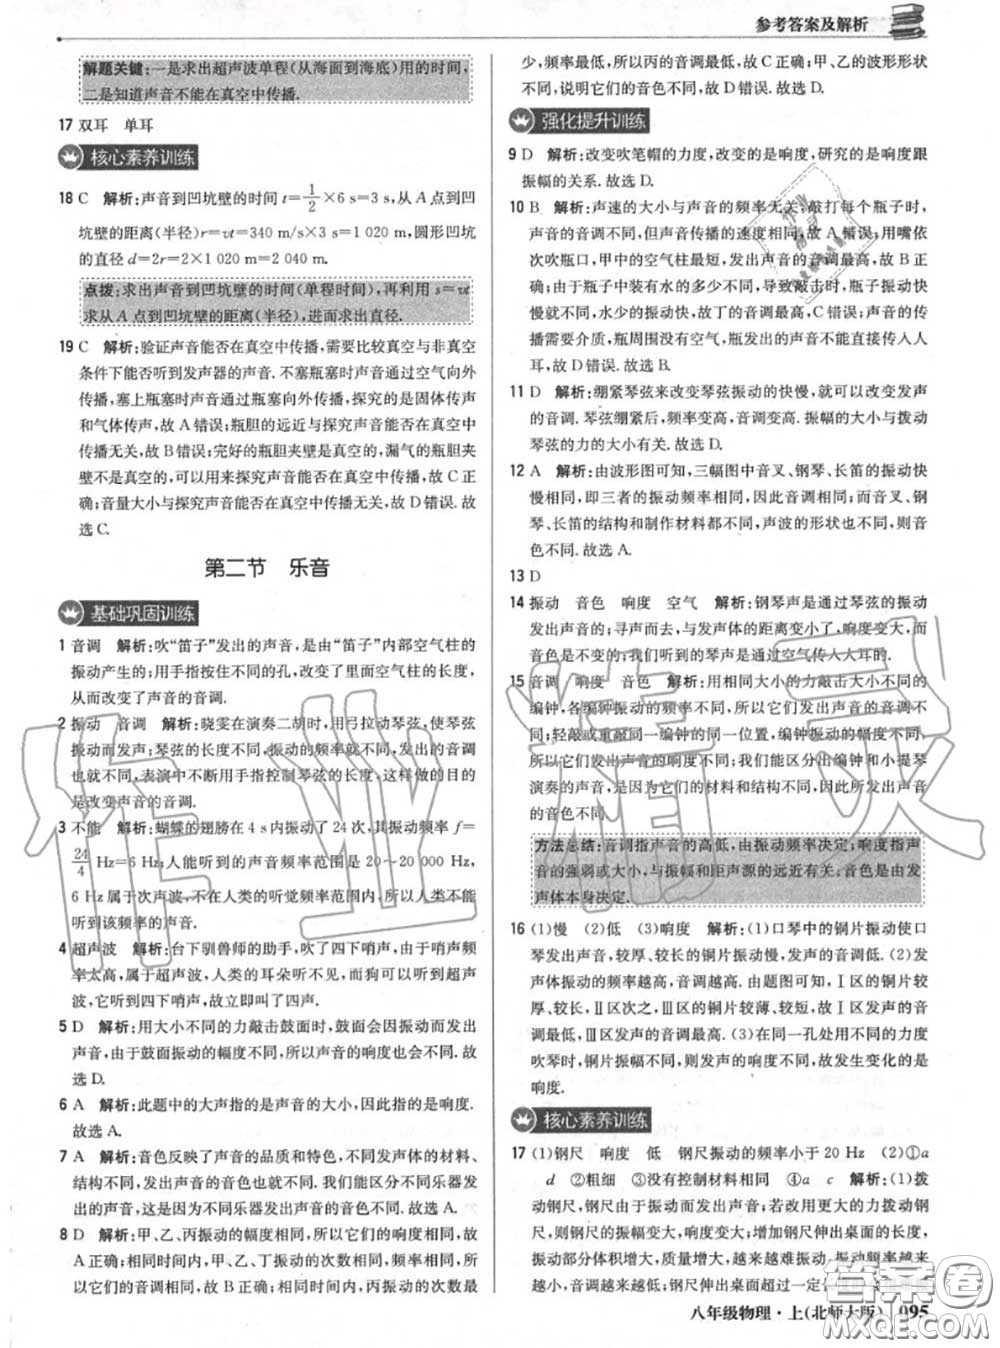 参考答案及解析
解题关键:一是求出超声波单程(从海面到海底)用的时间,
二是知道声音不能在真空中传播.
17 双耳 单耳
核心素养训练
18 C 解析:声音到凹坑壁的时间 t=1/2×6 s=3 s,从 A 点到凹
坑壁的距离(半径)r=vt=340 m/s×3 s=1 020 m,圆形凹坑
的直径 d=2r=2×1 020 m=2 040 m.
点拨:求出声音到凹坑壁的时间(单程时间),再利用 s=vt
求从 A 点到凹坑壁的距离(半径),进而求出直径.
19 C 解析:验证声音能否在真空中传播,需要比较真空与非真空
条件下能否听到发声器的声音. 不塞瓶塞时声音通过空气向外
传播,塞上瓶塞时声音通过瓶塞向外传播,探究的是固体传声
和气体传声,故 A 错误;瓶胆的远近与探究声音能否在真空中
传播无关,故 B 错误;完好的瓶胆夹壁是真空的,漏气的瓶胆夹
壁不是真空的,可以用来探究声音能否在真空中传播,故 C 正
确;音量大小与探究声音能否在真空中传播无关,故 D 错误. 故
选 C.
第二节 乐音
基础巩固训练
1 音调 解析:吹“笛子”发出的声音,是由“笛子”内部空气柱的
振动产生的;用手指按住不同的孔,改变了里面空气柱的长度,
从而改变了声音的音调.
2 振动 音调 解析:晓雯在演奏二胡时,用弓拉动琴弦,使琴弦
振动而发声;琴弦的长度不同,振动的频率就不同,发出的音调
也就不同,表演中不断用手指控制琴弦的长度,这样做的目的
是改变声音的音调.
3 不能 解析:蝴蝶的翅膀在 4 s 内振动了 24 次,其振动频率 f=
24/4 Hz=6 Hz;人能听到的声音频率范围是 20~20 000 Hz,
6 Hz 属于次声波,不在人类的听觉频率范围内,所以人不能
听到该频率的声音.
4 超声波 解析:台下驯兽师的助手,吹了四下哨声,而哨声频
率太高,属于超声波,人类的耳朵听不见,而狗可以听到超声
波,它听到四下哨声,故立即叫了四声.
5 D 解析:用大小不同的力敲击鼓面时,鼓面会因振动而发出
声音,由于鼓面振动的幅度不同,所以声音的响度也会不同. 故
选 D.
6 A 解析:此题中的大声指的是声音的大小,因此指的是响度.
故选 A.
7 A 解析:音色反映了声音的品质和特色,不同发声体的材料、
结构不同,发出声音的音色也就不同,我们能区分不同乐器发
出的声音,是因为不同乐器发出声音的音色不同. 故选 A.
8 D 解析:甲、乙、丙振动的幅度相同,所以它们的响度相同,
故 A 正确;相同时间内,甲、乙、丁振动的次数相同,频率相同,所
以它们的音调相同,故 B 正确;相同时间内,丙振动的次数最
少,频率最低,所以丙的音调最低,故 C 正确;甲、乙的波形形状
不同,说明它们的音色不同,故 D 错误. 故选 D.
强化提升训练
9 D 解析:改变吹笔帽的力度,改变的是响度,研究的是响度跟
振幅的关系. 故选 D.
10 B 解析:声速的大小与声音的频率无关,敲打每个瓶子时,
声音的音调不同,但声音传播的速度相同,故 A 错误;用嘴依
次吹瓶口,甲中的空气柱最短,发出声音的音调最高,故 B 正
确;由于瓶子中装有水的多少不同,导致敲击时,瓶子振动快
慢就不同,水少的振动快,故丁的音调最高,C 错误;声音的传
播需要介质,瓶周围没有空气,瓶发出的声音不能直接传入人
耳,故 D 错误. 故选 B.
11 D 解析:绷紧琴弦来改变琴弦振动的快慢,就可以改变发声
的音调. 琴弦绷紧后,频率变高,音调变高. 振幅的大小与拨动
琴弦的力的大小有关. 故选 D.
12 A 解析:由波形图可知,三幅图中音叉、钢琴、长笛的振动快
慢相同,即三者的振动频率相同,因此音调相同;而音叉、钢
琴、长笛的结构和制作材料都不同,声波的形状也不同,则音
色不同. 故选 A.
13 D
14 振动 音色 响度 空气 解析:钢琴声是通过琴弦的振动
发出声音的;寻声而去,与发声体的距离变小了,响度变大,而
音色是不变的;我们听到的琴声是通过空气传入人耳的.
15 音调 响度 音色 解析:用相同大小的力敲击大小不同的
编钟,各编钟振动的频率不同,因此所发出声音的音调不
同;轻敲或重敲同一编钟的同一位置,编钟振动的幅度不同,
所以发出声音的响度不同;我们能区分出编钟和小提琴
演奏的声音,是因为它们的材料和结构不同,因此所发出声音
的音色不同.
方法总结:音调指声音的高低,由振动频率决定;响度指声
音的强弱或大小,与振幅和距声源的远近有关;音色是由发
声体本身决定.
16 (1)慢 (2)低 (3)响度 解析:(1)口琴中的铜片振动使口
琴发出声音,较厚、较长的铜片振动较慢,音调较低. (2)发
声体振动频率越高,音调越高. 图中,Ⅰ区的铜片较
厚、较长,Ⅱ区次之,Ⅲ区的铜片较薄、较短,故Ⅰ区发声的音
调最低,Ⅲ区发声的音调最高. (3)在同一孔处用不同的力度
吹琴时,铜片振幅不同,则发声的响度不同,故发生变化的是
响度.
核心素养训练
17 (1)钢尺 响度 低 钢尺振动的频率小于 20 Hz (2)①a
d ②粗细 ③没有控制材料相同 ④a c 解析:(1)拨
动钢尺,听到的声音是由钢尺振动发出的;若改用更大的力拨动钢
尺,则钢尺的振幅变大,响度变大;增加钢尺伸出桌面的长度,
振动部分体积增大、质量增大,越来越难振动,振动频率越来
越小,音调越来越低;钢尺伸出桌面超过一定
八年级物理·上(北师大版) 095
作业精灵
答案卷
MXQE.COM